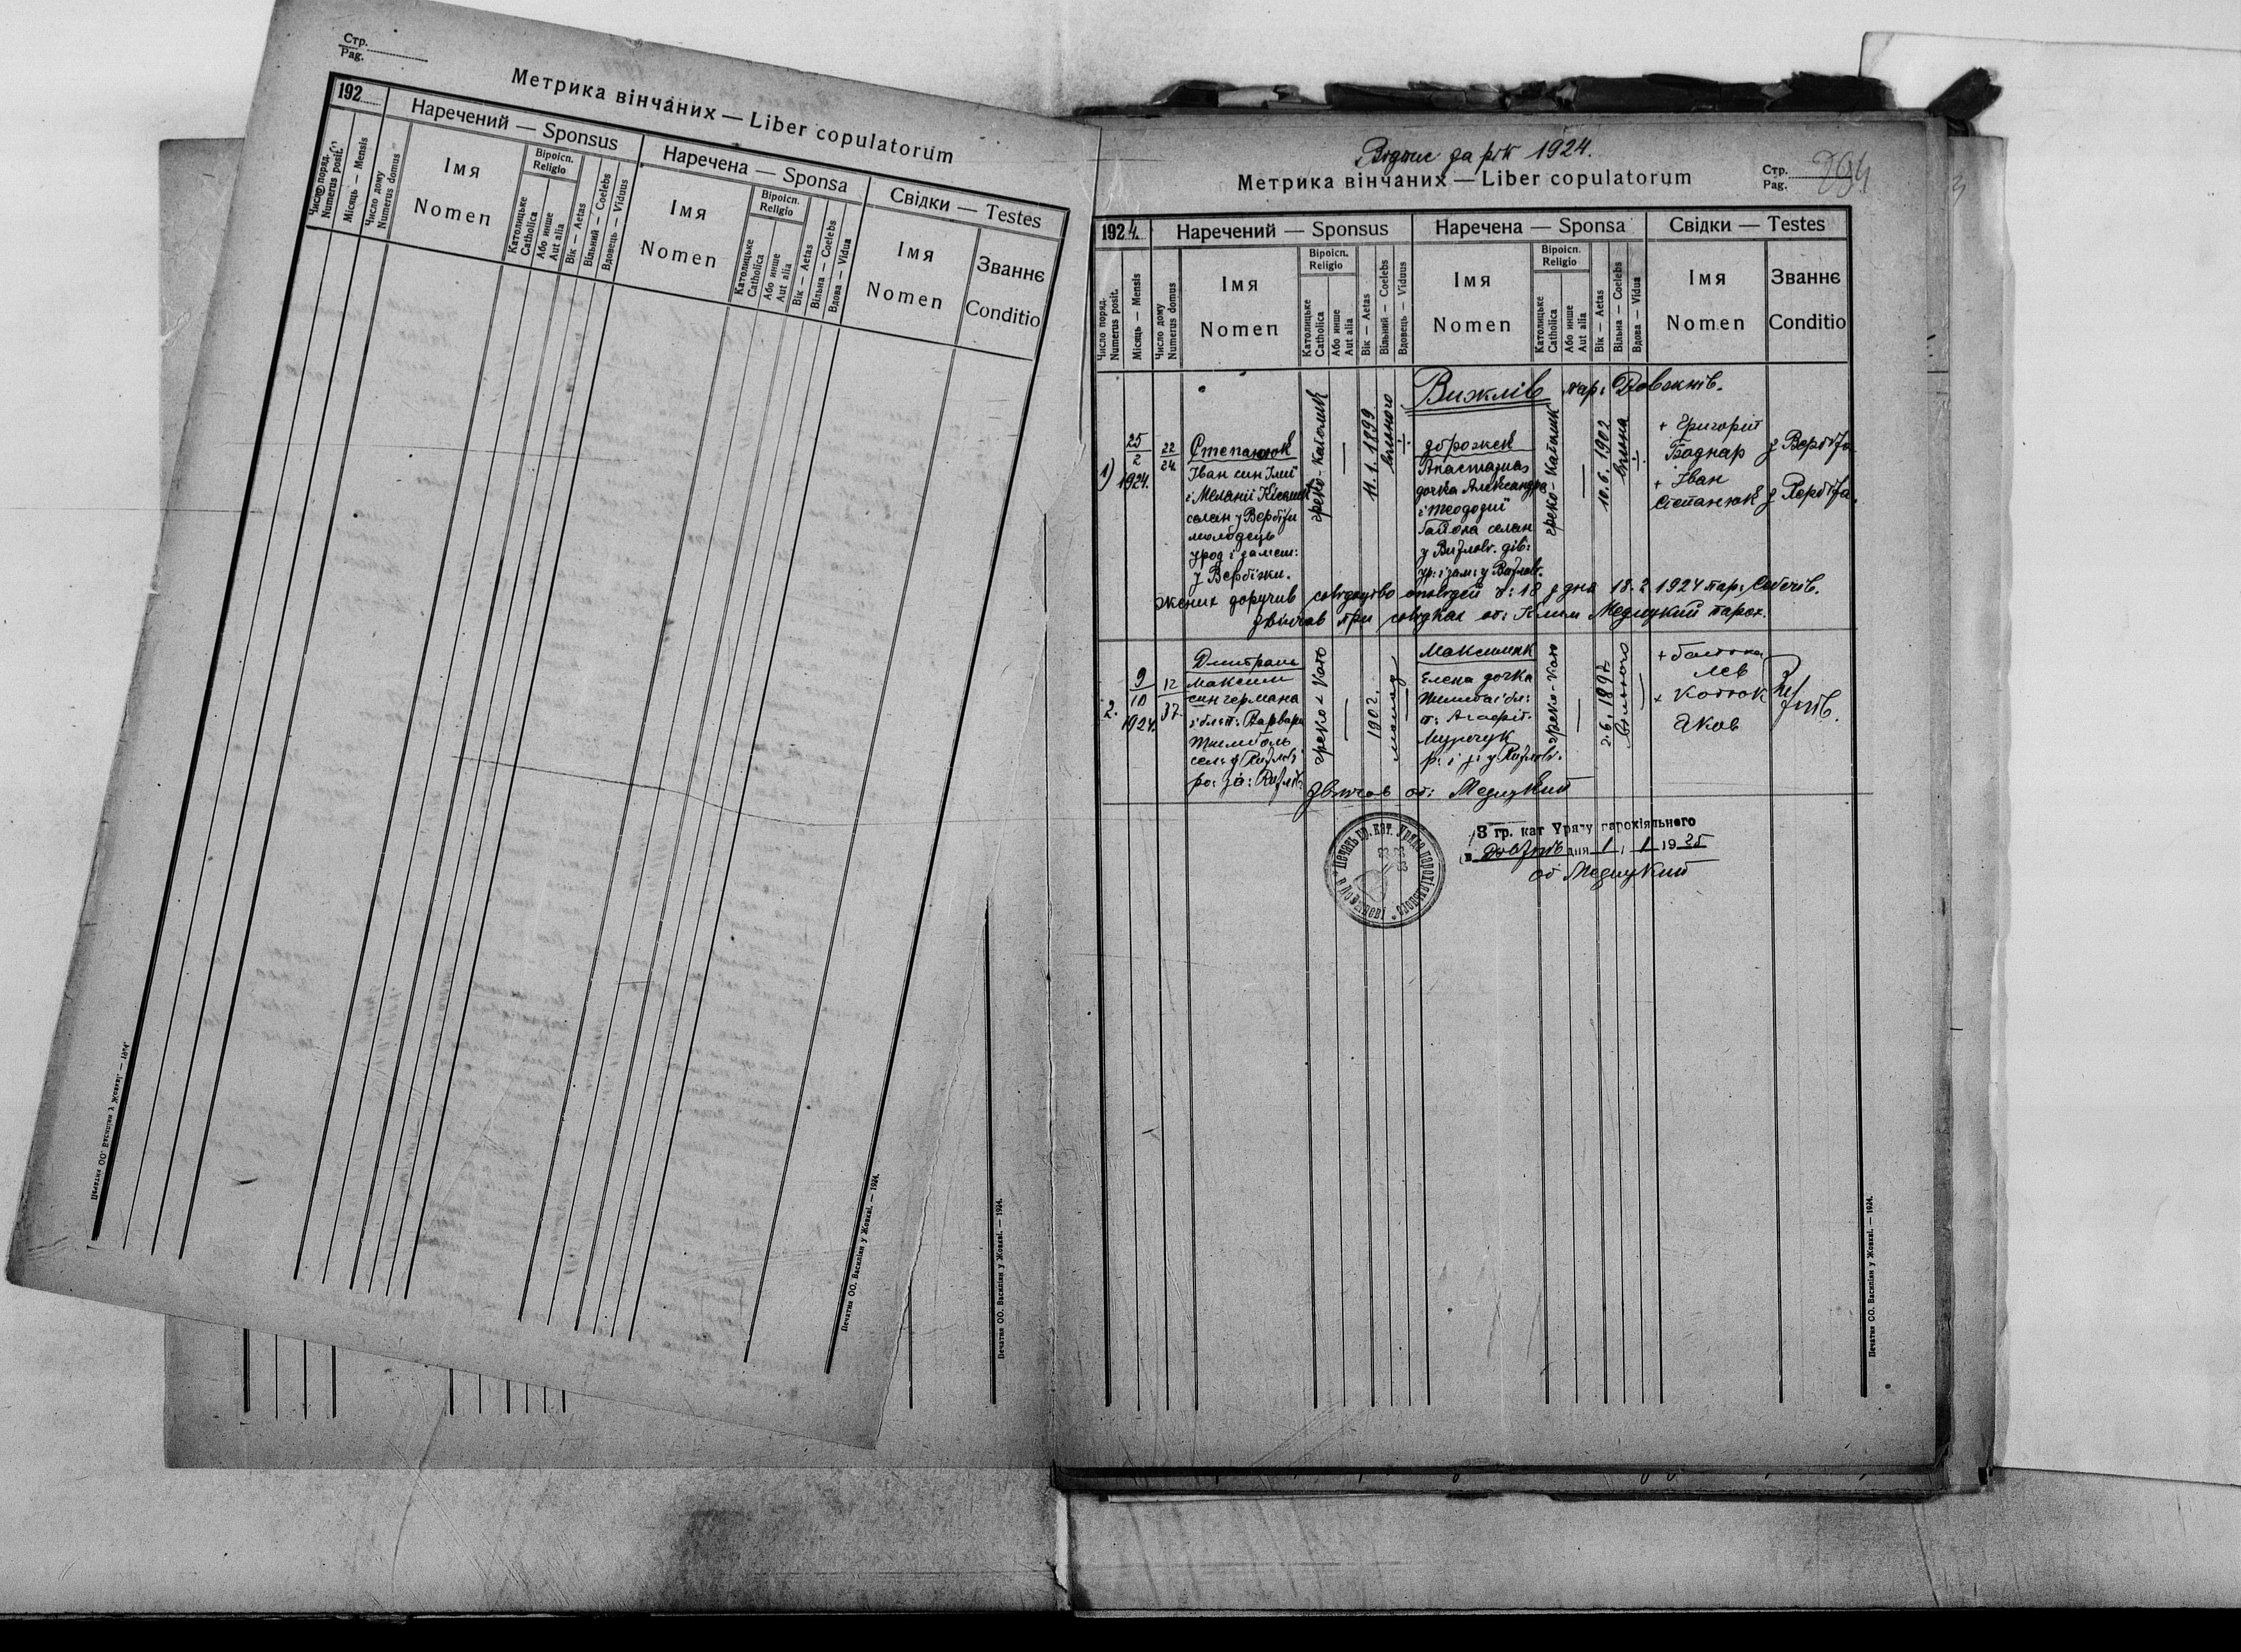 Стр.
Pag.
Метрика вінчаних — Liber copulatorum
192
Наречений — Sponsus
Наречена — Sponsa
Свідки — Testes
Число поряд.
Numerus posit.
Місяць — Mensis
Число дому
Numerus domus
Імя
Nomen
Віроісп.
Religio
Католицьке
Catholica
Або инше
Aut alia
Вік — Aetas
Вільний — Coelebs
Вдовець — Viduus
Імя
Nomen
Віроісп.
Religio
Католицьке
Catholica
Або инше
Aut alia
Вік — Aetas
Вільна — Coelebs
Вдова — Vidua
Імя
Nomen
Званнє
Conditio
Печатня ОО. Василіян у Жовкві. — 1924.
Печатня ОО. Василіян у Жовкві. — 1924.
Печатня ОО. Василіян у Жовкві. — 1924.
Відпис за рік 1924.
Метрика вінчаних — Liber copulatorum
Стр.
Pag.
1924.
Наречений — Sponsus
Наречена — Sponsa
Свідки — Testes
Число поряд.
Numerus posit.
Місяць — Mensis
Число дому
Numerus domus
Імя
Nomen
Віроісп.
Religio
Католицьке
Catholica
Або инше
Aut alia
Вік — Aetas
Вільний — Coelebs
Вдовець — Viduus
Імя
Nomen
Віроісп.
Religio
Католицьке
Catholica
Або инше
Aut alia
Вік — Aetas
Вільна — Coelebs
Вдова — Vidua
Імя
Nomen
Званнє
Conditio
Вижлів пар:
1)
25
2
1924.
22
24
Степанюк
Іван син Ілиї
і Меланії
селян з Вербіжи
молодець
урод і замеш:
з Вербіжи.
греко-католик
11.1.1899
вільного
Анастазия
дочка Александра
і Теодозиї
селян
з Вижлов. дів:
ур: і зам: з Вижлов.
греко-католик
10.6.1902
вільна
+ Григорій
Боднар
з Вербіжа
+ Іван
Степанюк
з Вербіжа.
жених доручив свідоцтво оповідей ч: 18 з дня 18.2 1924 пар:
звінчав при свідках от: Клим Медицкий парох.
2.
9
10
1924.
12
37.
Максим
син Германа
Варвари
греко-като
1902.
Максимяк
Елена дочка
р: і з: у Вижлові.
греко-като
2.6.1897
вільного
Лев
+ Котюк
Яков
звінчав от: Медицкий
Печать гр. кат. Уряда парохіяльного
З гр. кат Уряду парохіяльного
в дня 1 / 1 1925
от Медицкий
Печатня ОО. Василіян у Жовкві. — 1924.